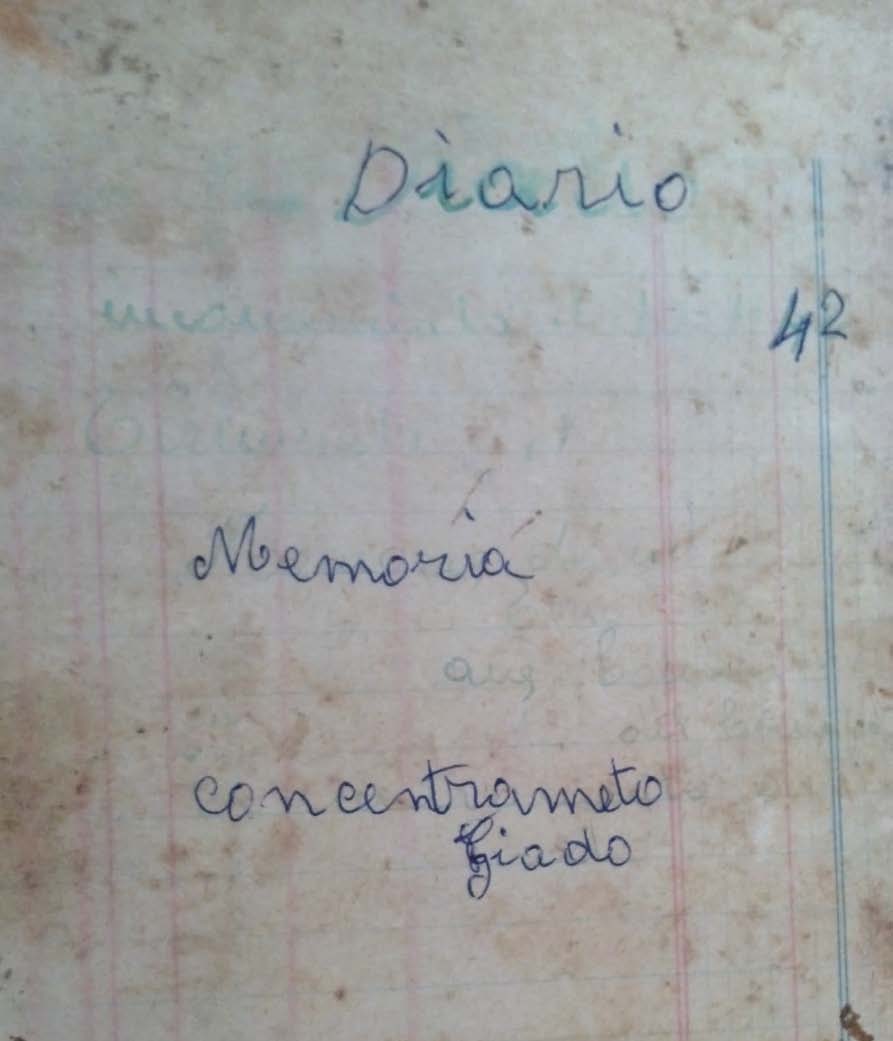 Diario
42
Memoria
concentrameto
Giado